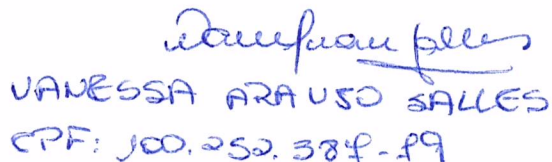 VANESSA ARAUSO SALLES
CPF: 100.252.387-79